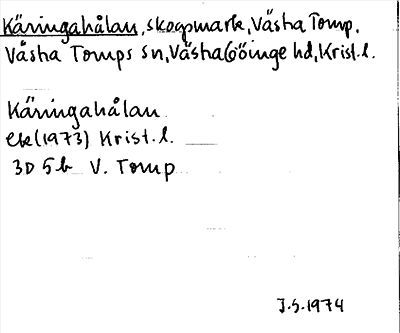 Käringahålan, skogsmark, Västra Torup.
Västra Torups sn, Västra Göinge hd, Krist.l.
Käringahålan
ek(1973) Krist.l.
3D 5b V. Torup
J.S.1974